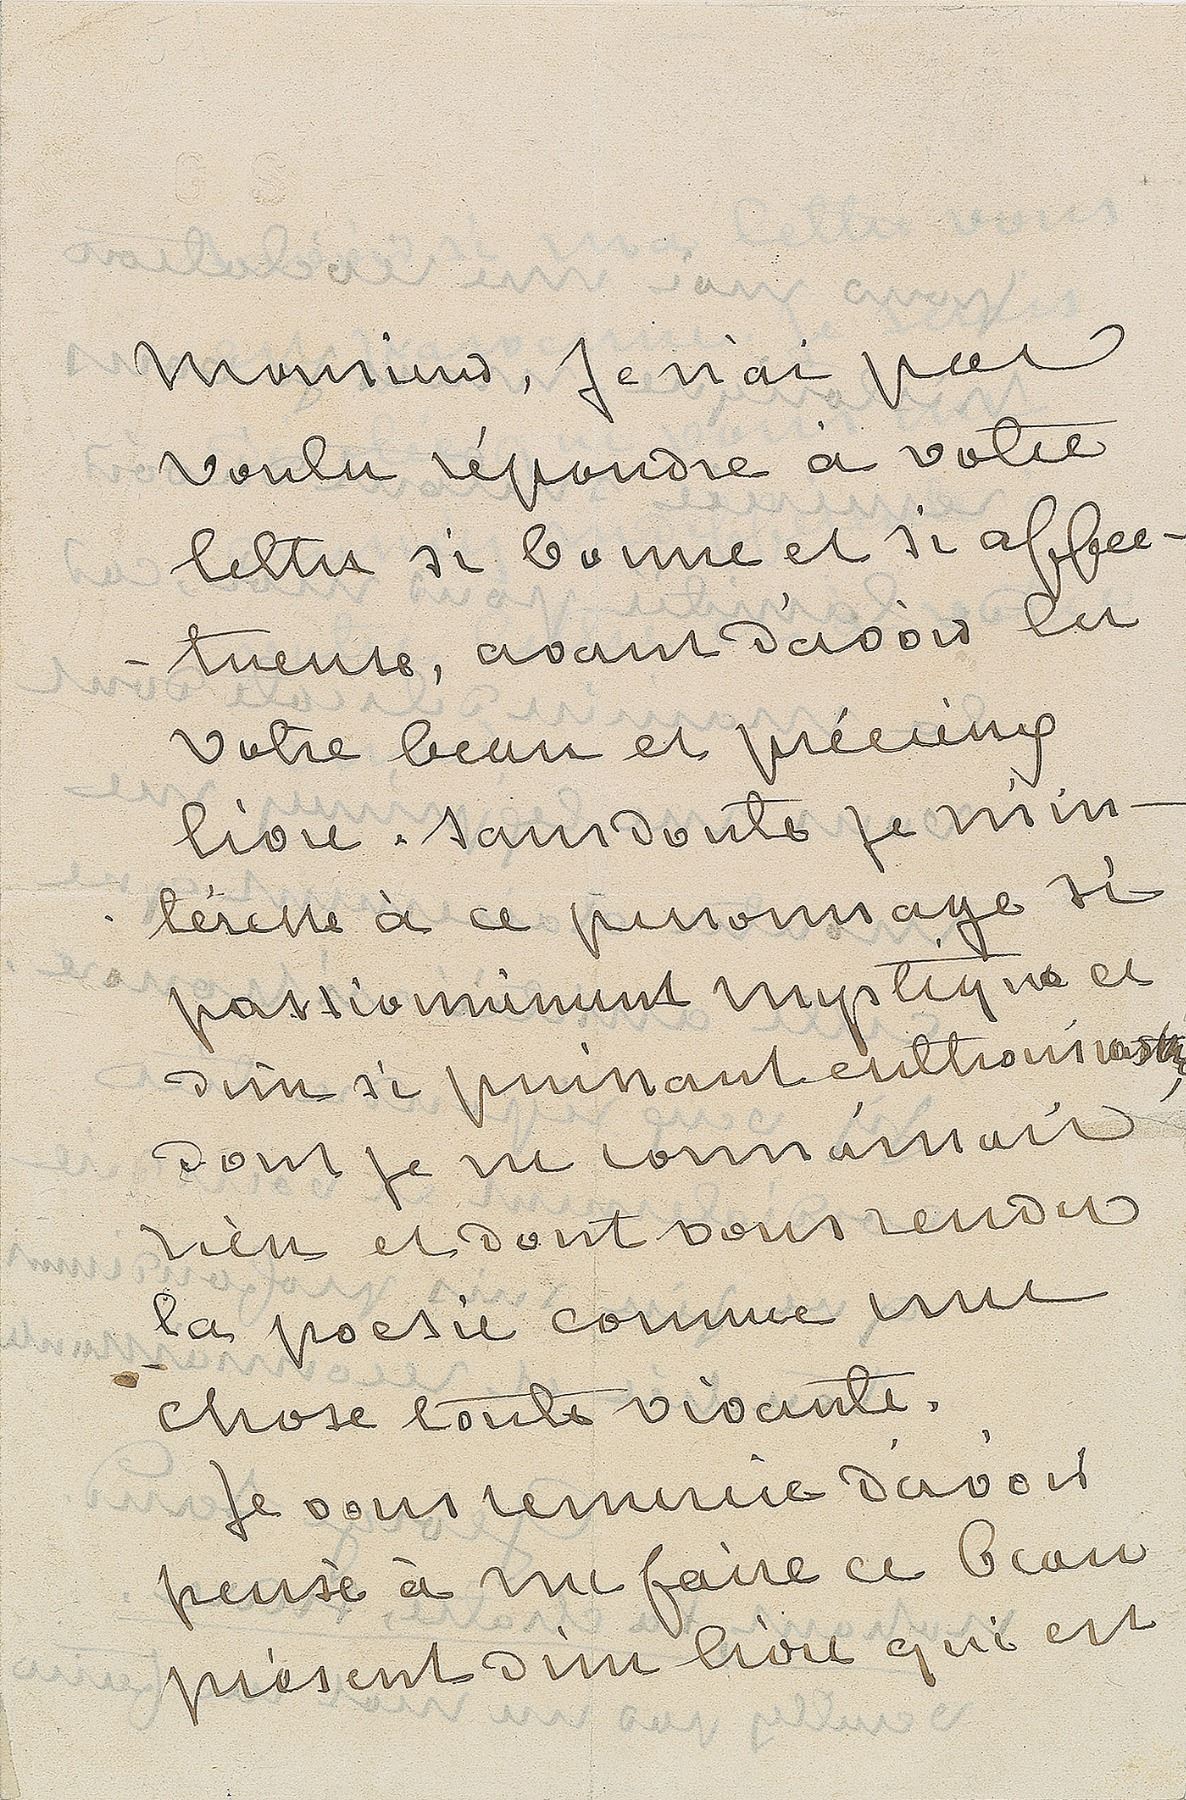 G S
Monsieur, Je n'ai pas
voulu répondre à votre
lettre si bonne et si affec-
-tueuse, avant d'avoir lu
votre beau et précieux
livre. Sans doute je m'in-
téresse à ce personnage si
passionnément mystique et
d'un si puissant
dont je ne connaissais
rien et dont vous rendez
la poesie comme une
chose toute vivante.
Je vous remercie d'avoir
pensé à me faire ce beau
présent d'un livre qui est